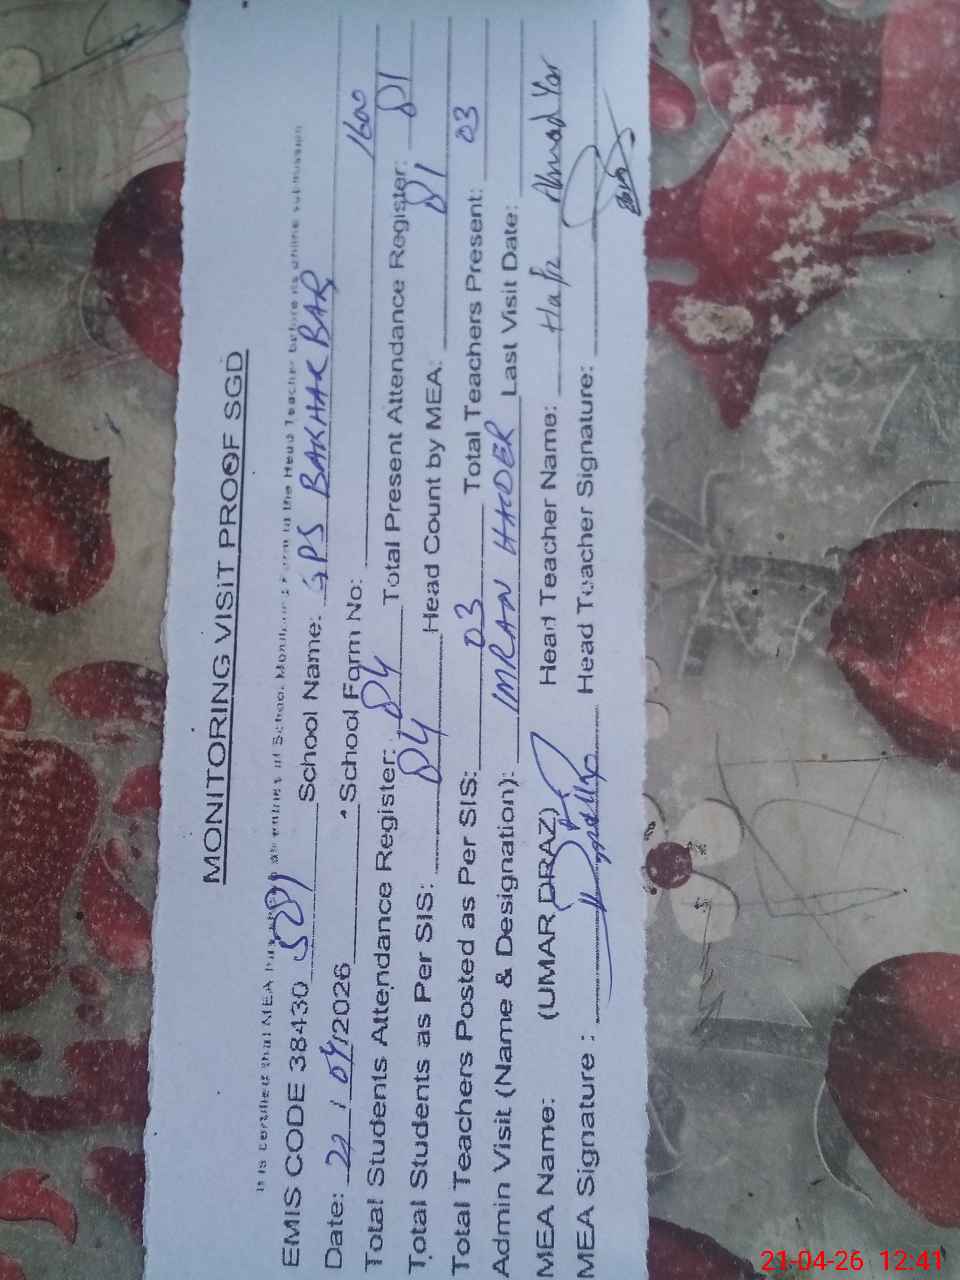 MONITORING VISIT PROOF OF SGD
It is certified that MEA has entries of School Monitoring Form to the Head Teacher before its online submission
EMIS CODE 38430 5281 School Name: GPS BAKHAR BAR
Date: 22 / 04 /2026 School Form No: 1600
Total Students Attendance Register: 84 Total Present Attendance Register: 81
Total Students as Per SIS: 84 Head Count by MEA: 81
Total Teachers Posted as Per SIS: 03 Total Teachers Present: 03
Admin Visit (Name & Designation): IMRAN HAIDER Last Visit Date:
MEA Name: (UMAR DRAZ) Head Teacher Name: Hafiz Ahmad Yar
MEA Signature : Head Teacher Signature:
21-04-26 12:41